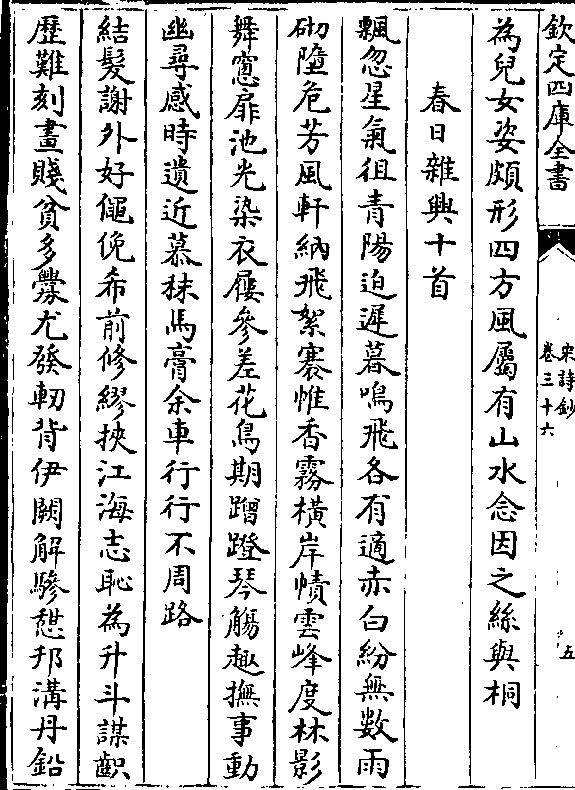 欽定四庫全書
宋詩鈔
卷三十六
五
為兒女姿頗形四方風屬有山水念因之絲與桐
春日雜興十首
飄忽星氣徂青陽迫遲暮鳴飛各有適赤白紛無數雨
砌墮危芳風軒納飛絮褰帷香霧橫岸幘雲峰度林影
舞窻扉池光染衣屨參差花鳥期蹭蹬琴觴趣撫事動
幽尋感時遺近慕秣馬膏余車行行不周路
結髮謝外好僶俛希前修繆挾江海志恥為升斗謀齞
歷難刻畫賤貧多釁尤發軔背伊闕解驂憇邗溝丹鉛